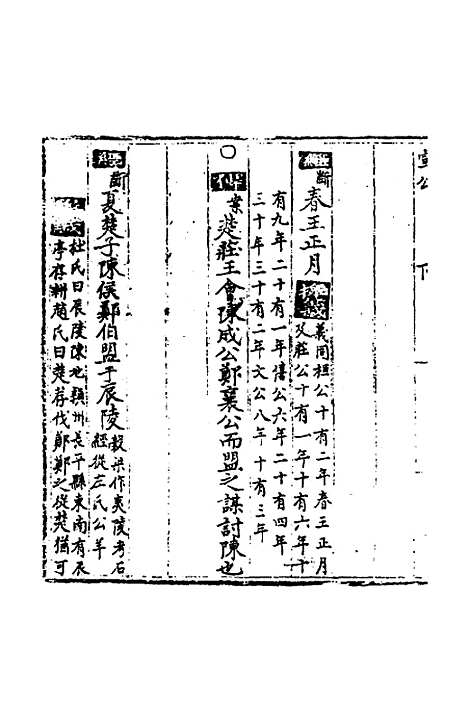 宣公
下
經斷春王正月
義同桓公十有二年春王正月
及莊公十有一年十有六年十
有九年二十有一年僖公六年二十有四年
三十年三十有二年文公八年十有三年
案楚莊王會陳成公鄭襄公而盟之謀討陳也
經斷夏楚子陳侯鄭伯盟于辰陵
穀梁作夷陵考石
經從左氏公羊
杜氏曰辰陵陳地潁州長平縣東南有辰
亭存耕趙氏曰楚荐伐鄭鄭之從楚猶可